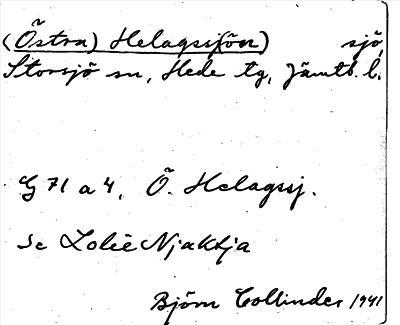 (Östra) Helagssjön) sjö,
Storsjö sn, Hede tg, Jämtl. l.
G 71 a 4, Ö. Helagssj.
se Lolië Njaktja
Björn Collinder 1941